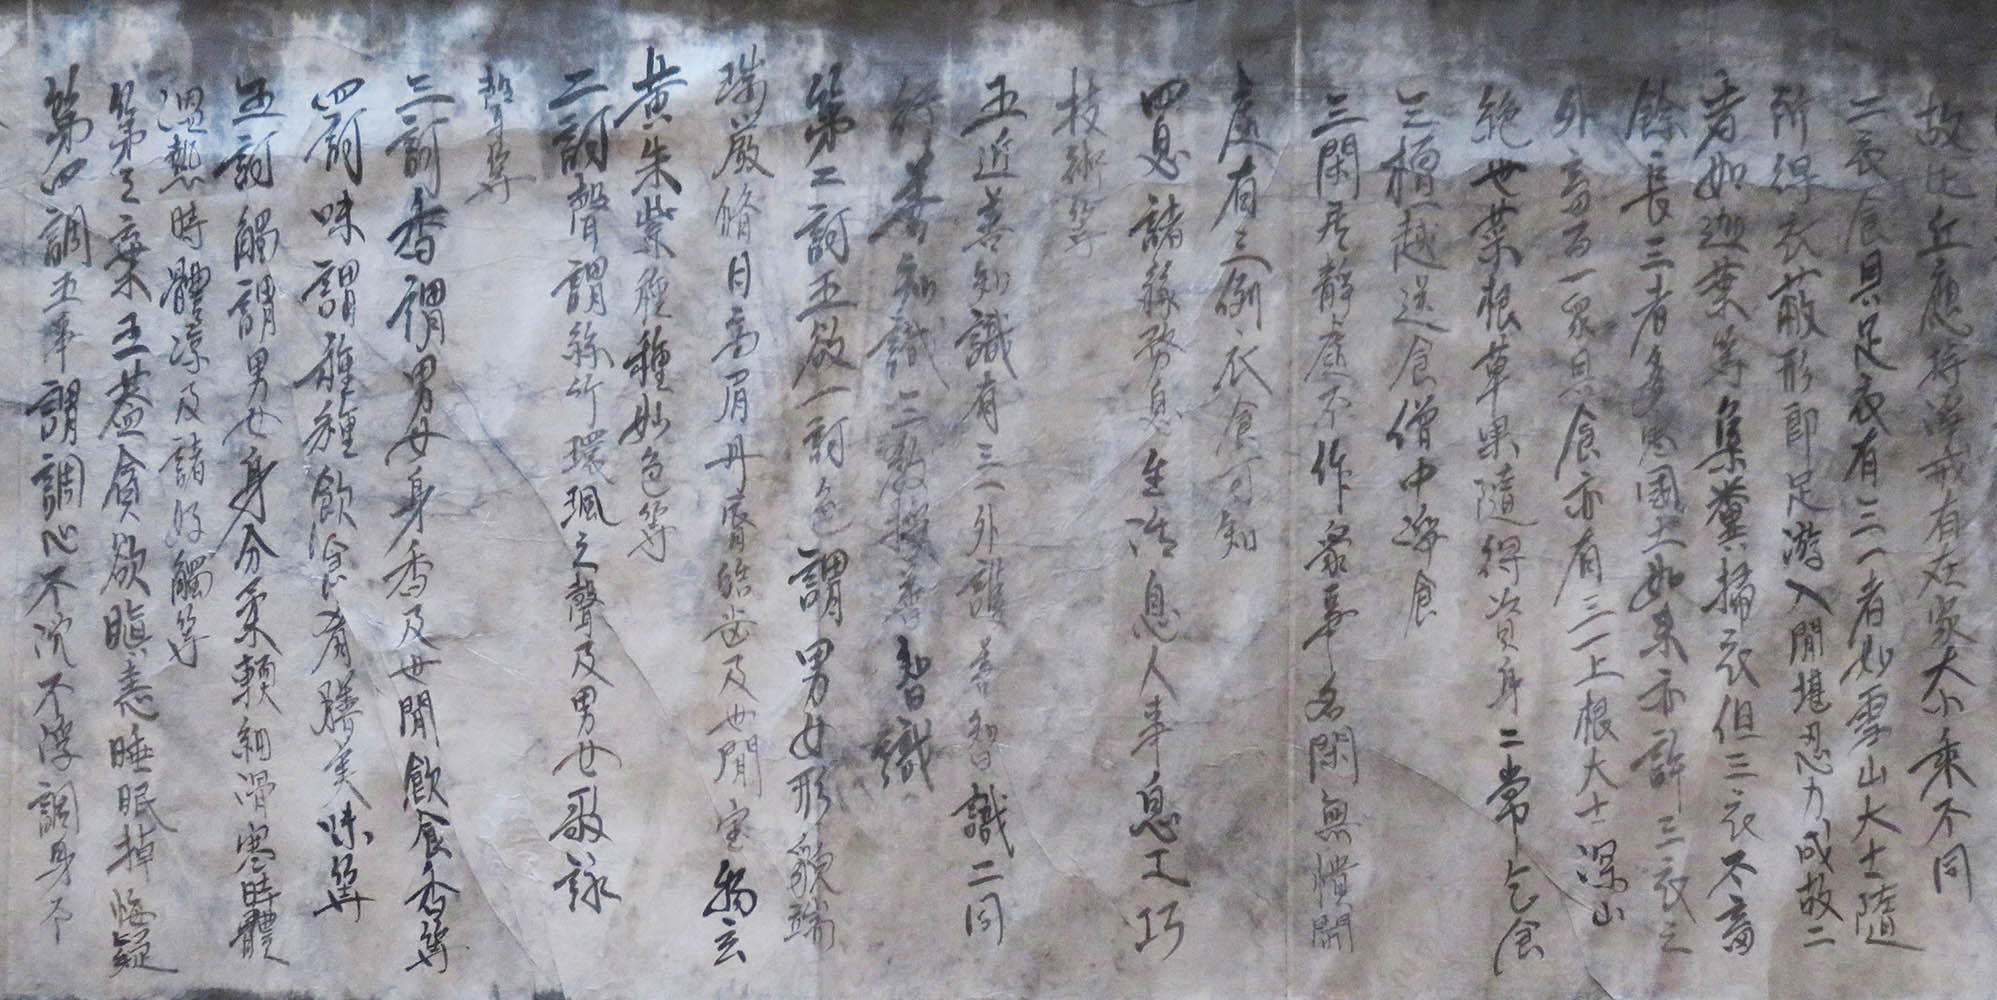 故比丘應持淨戒有在家大小乘不同
二衣食具足衣有三一者妙雪山大士隨
所得衣蔽形即足游入閒堪忍力成故二
者如迦葉等集糞掃衣但三衣不畜
餘長三者多寒國土如來亦許三衣之
外畜百一眾具食亦有三一上根大士深山
絕世菜根草果隨得資身二常乞食
三檀越送食僧中淨食
三閑居靜處不作眾事名閑無憒鬧
處有三例衣食可知
四息諸緣務息生活息人事息工巧
技術等
五近善知識有三一外護善知識二同
行善知識三教授善知識
第二訶五欲一訶色謂男女形貌端
端嚴脩目高眉丹唇皓齒及世間寶物玄
黃朱紫種種妙色等
二訶聲謂絲竹環珮之聲及男女歌詠
聲等
三訶香謂男女身香及世間飲食香等
四訶味謂種種飲食肴膳美味等
五訶觸謂男女身分柔軟細滑寒時體
溫熱時體涼及諸好觸等
第三棄五蓋貪欲瞋恚睡眠掉悔疑
第四調五事謂調心不沉不浮調身不